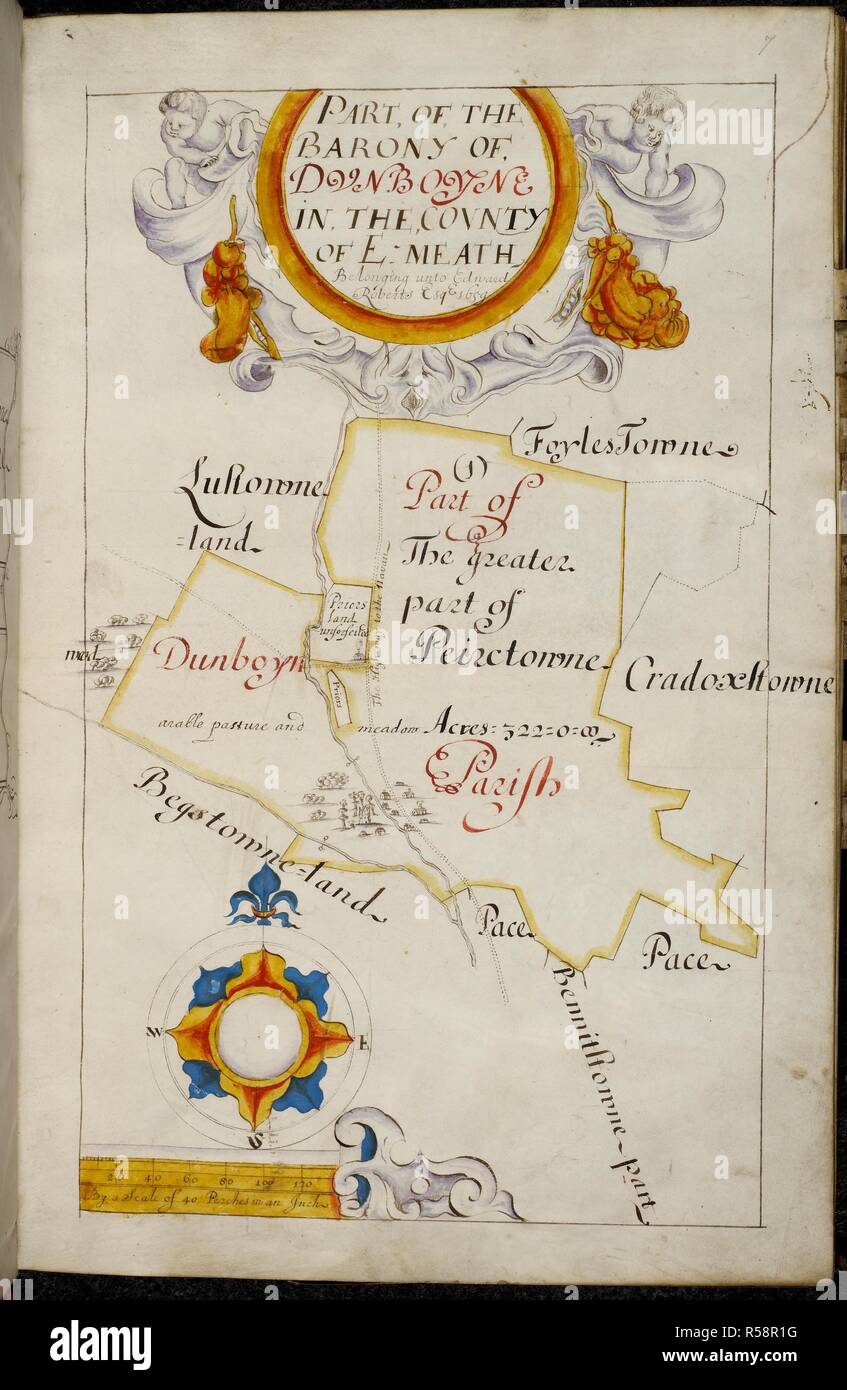 7
PART, OF, THE
BARONY OF,
DVNBOYNE
IN, THE, COVNTY
OF E: MEATH
Belonging unto Edward
Roberts Esqe 1659
FoylesTowne
Lustowne
=land
(1)
Part of
The greater
part of
Peirctowne
Priors
land
unforfeited
The High way to the Navan
wood
Dunboyn
Cradoxstowne
Priors
arable pasture and meadow Acres=322=0=00
Parish
Begstowne=land
Pace
Pace
Bennitstowne part
W E
S
20 40 60 80 100 120
By a Scale of 40 Perches in an Inch
alamy
Image ID: R58R1G
www.alamy.com